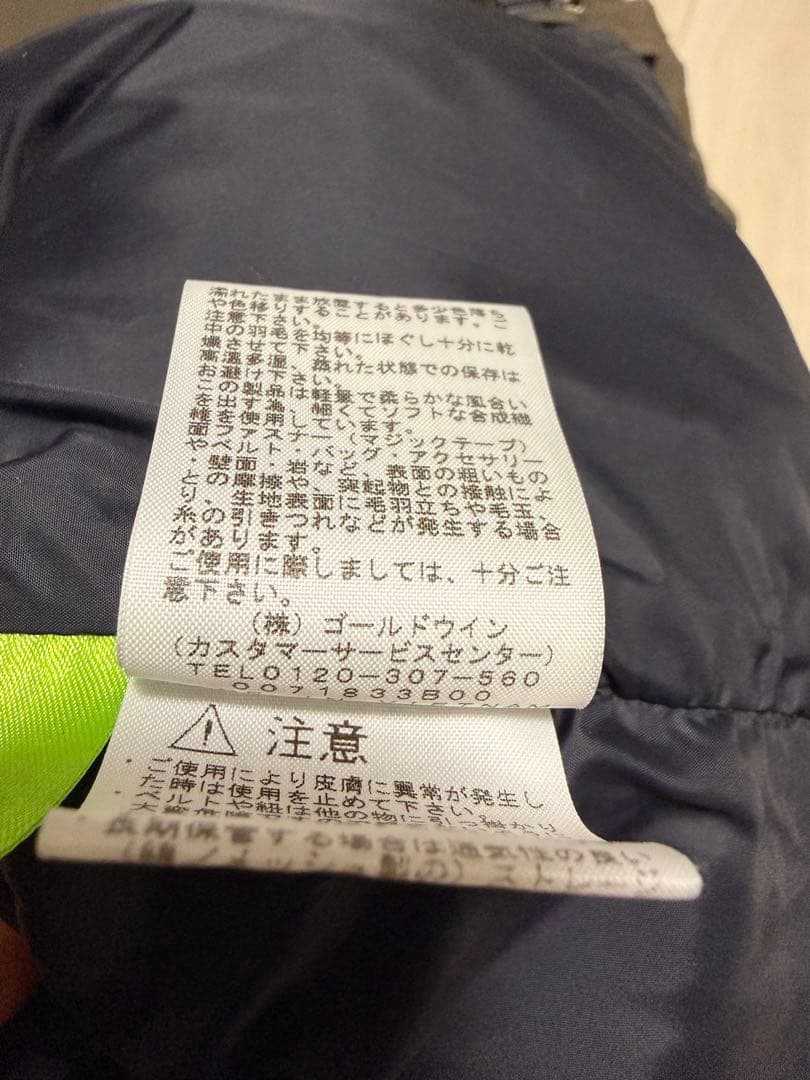 濡れたまま放置すると多少色落ち
や色移りすることがあります。ご
注意下さい。
中の羽毛を均等にほぐし十分に乾
燥させて下さい。
高温多湿、蒸れた状態での保存は
お避け下さい。
この製品は軽量で柔らかな風合い
を出す為、細くてソフトな合成繊
維を使用しています。
面ファスナー(マジックテープ)
やベルト・バッグ・アクセサリー
・壁面・岩など、表面の粗いもの
との摩擦や、突起物との接触によ
り、生地表面に毛羽立ちや毛玉、
糸の引きつれなどが発生する場合
があります。
ご使用に際しましては、十分ご注
意下さい。
(株) ゴールドウイン
(カスタマーサービスセンター)
TEL0120-307-560
0071833B00
VIETNAM
注意
・ご使用により皮膚に異常が発生し
た時は使用を止めて下さい。
・ベルトや紐は他の物に引っ掛かり
長期保管する場合は通気性の良い